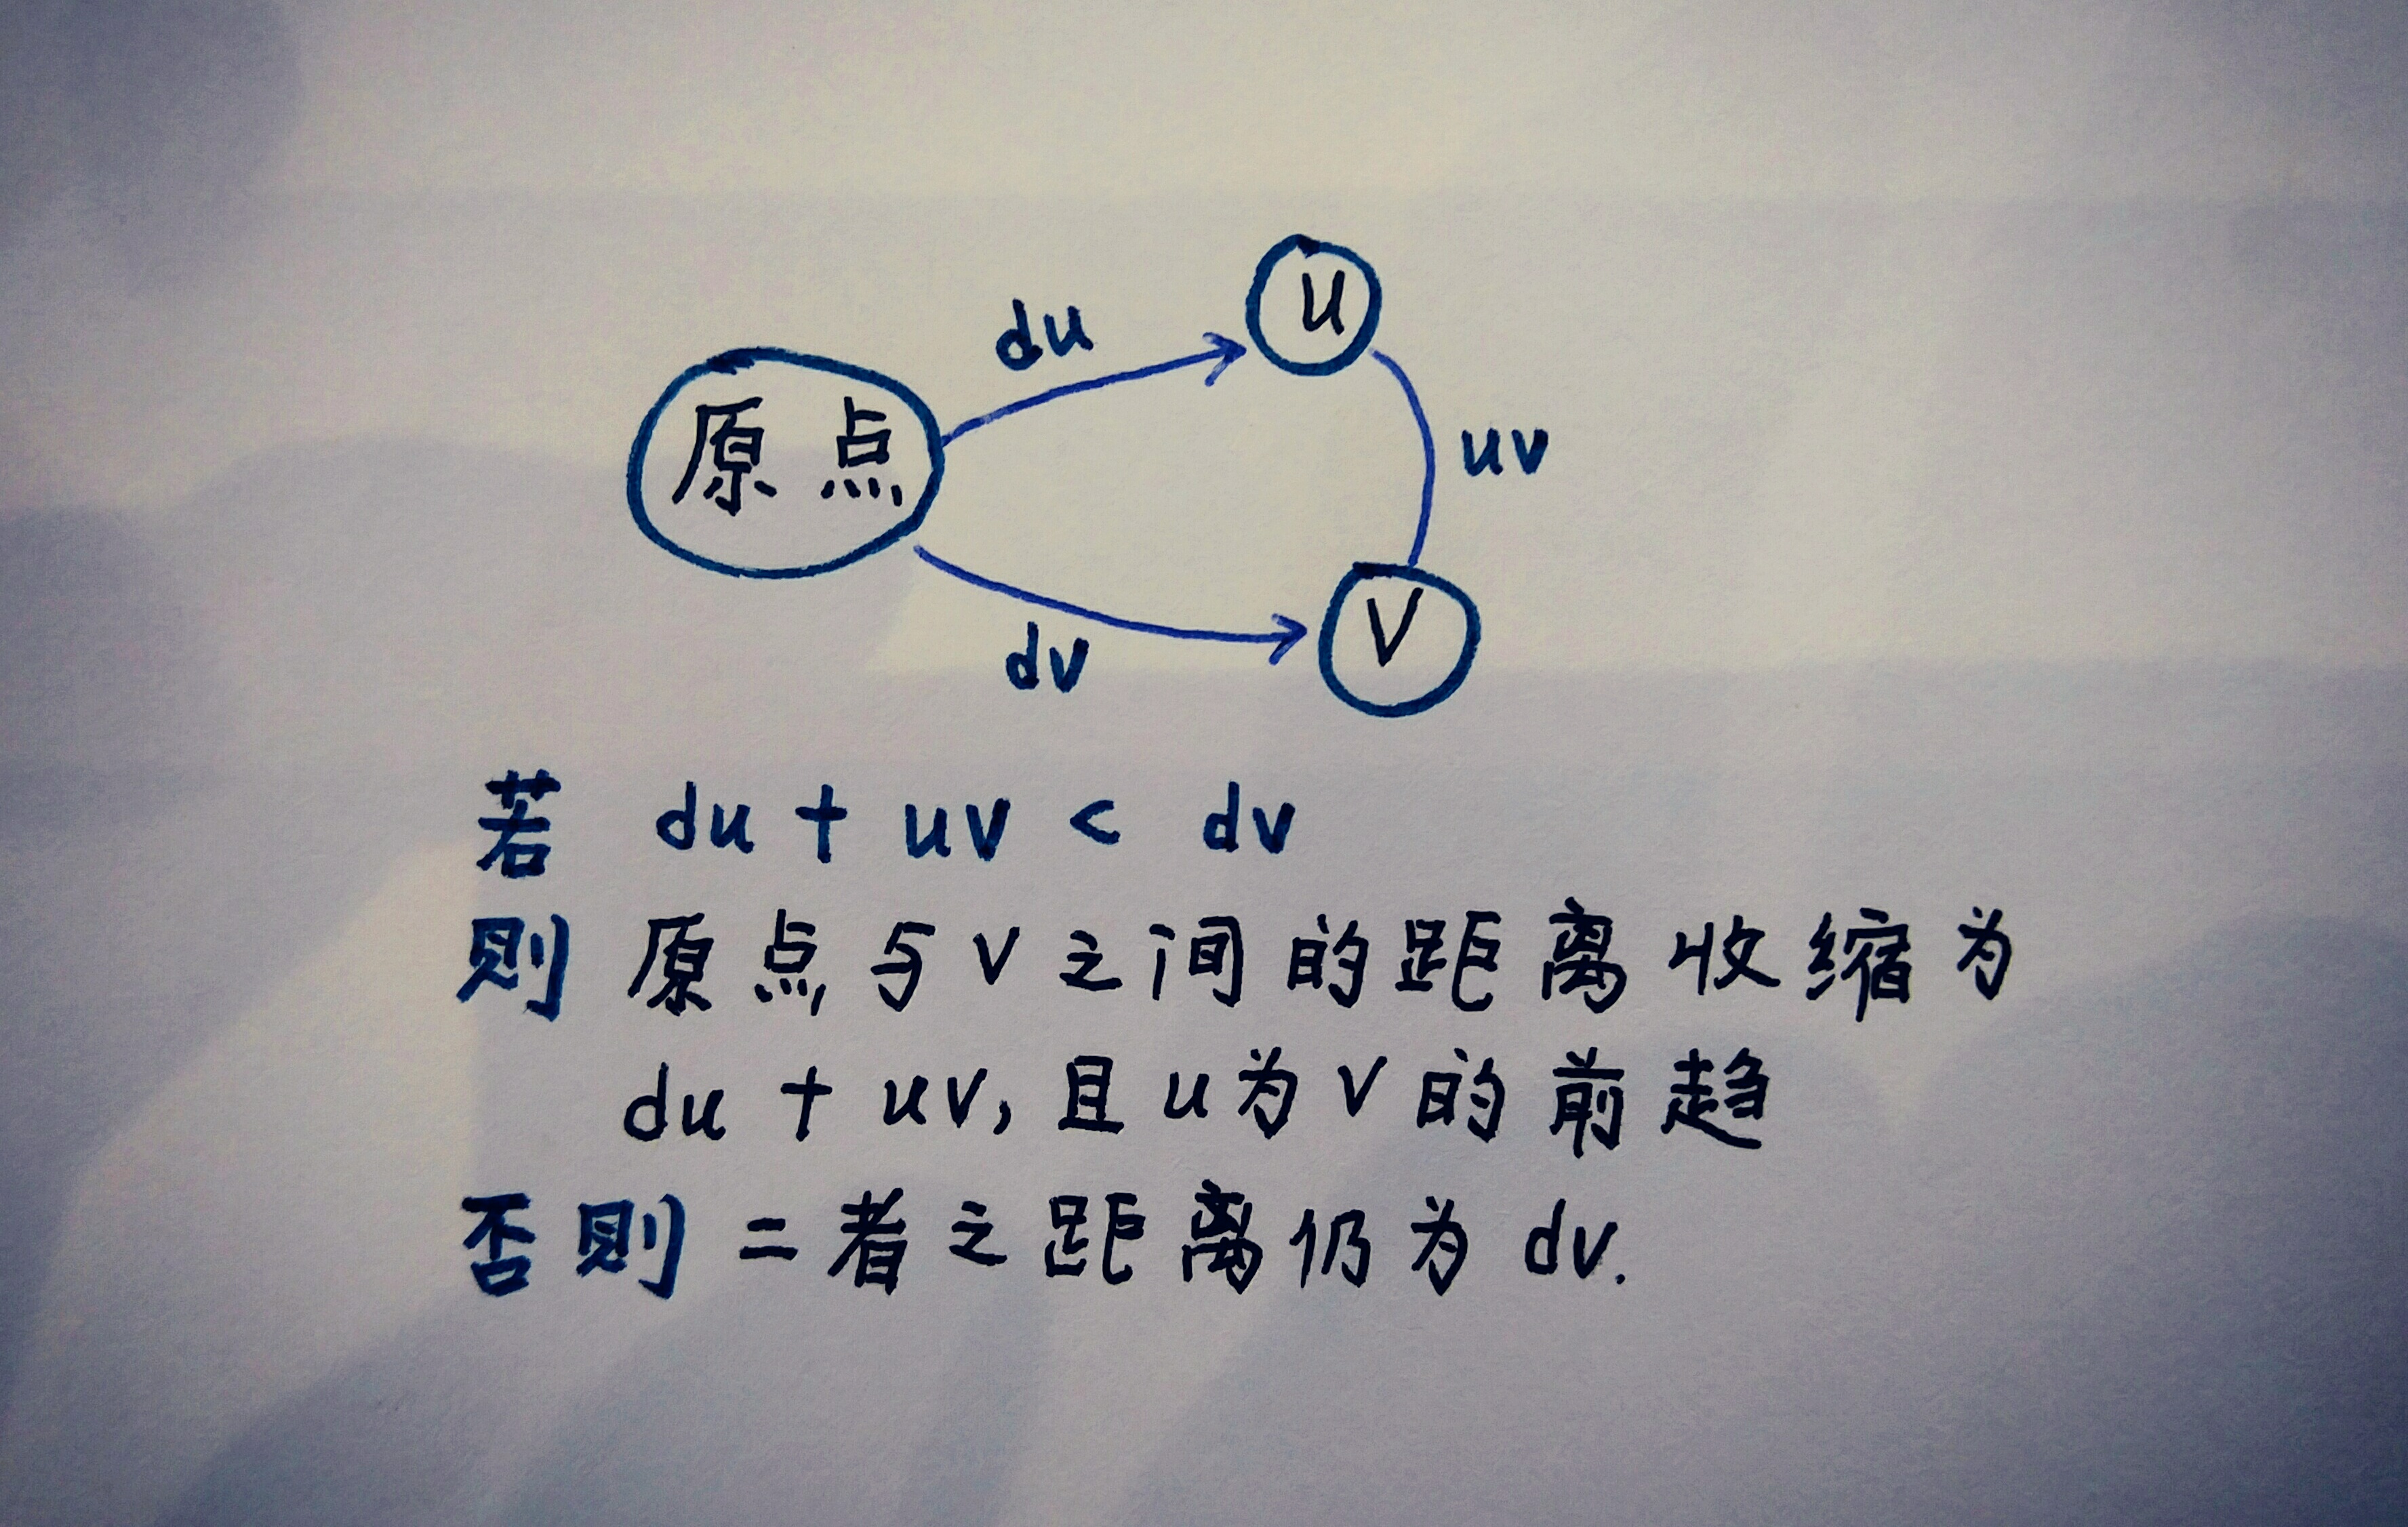 du
u
原点
uv
dv
v
若 du + uv < dv
则 原点与v之间的距离收缩为
du + uv, 且u为v的前趋
否则二者之距离仍为 dv.